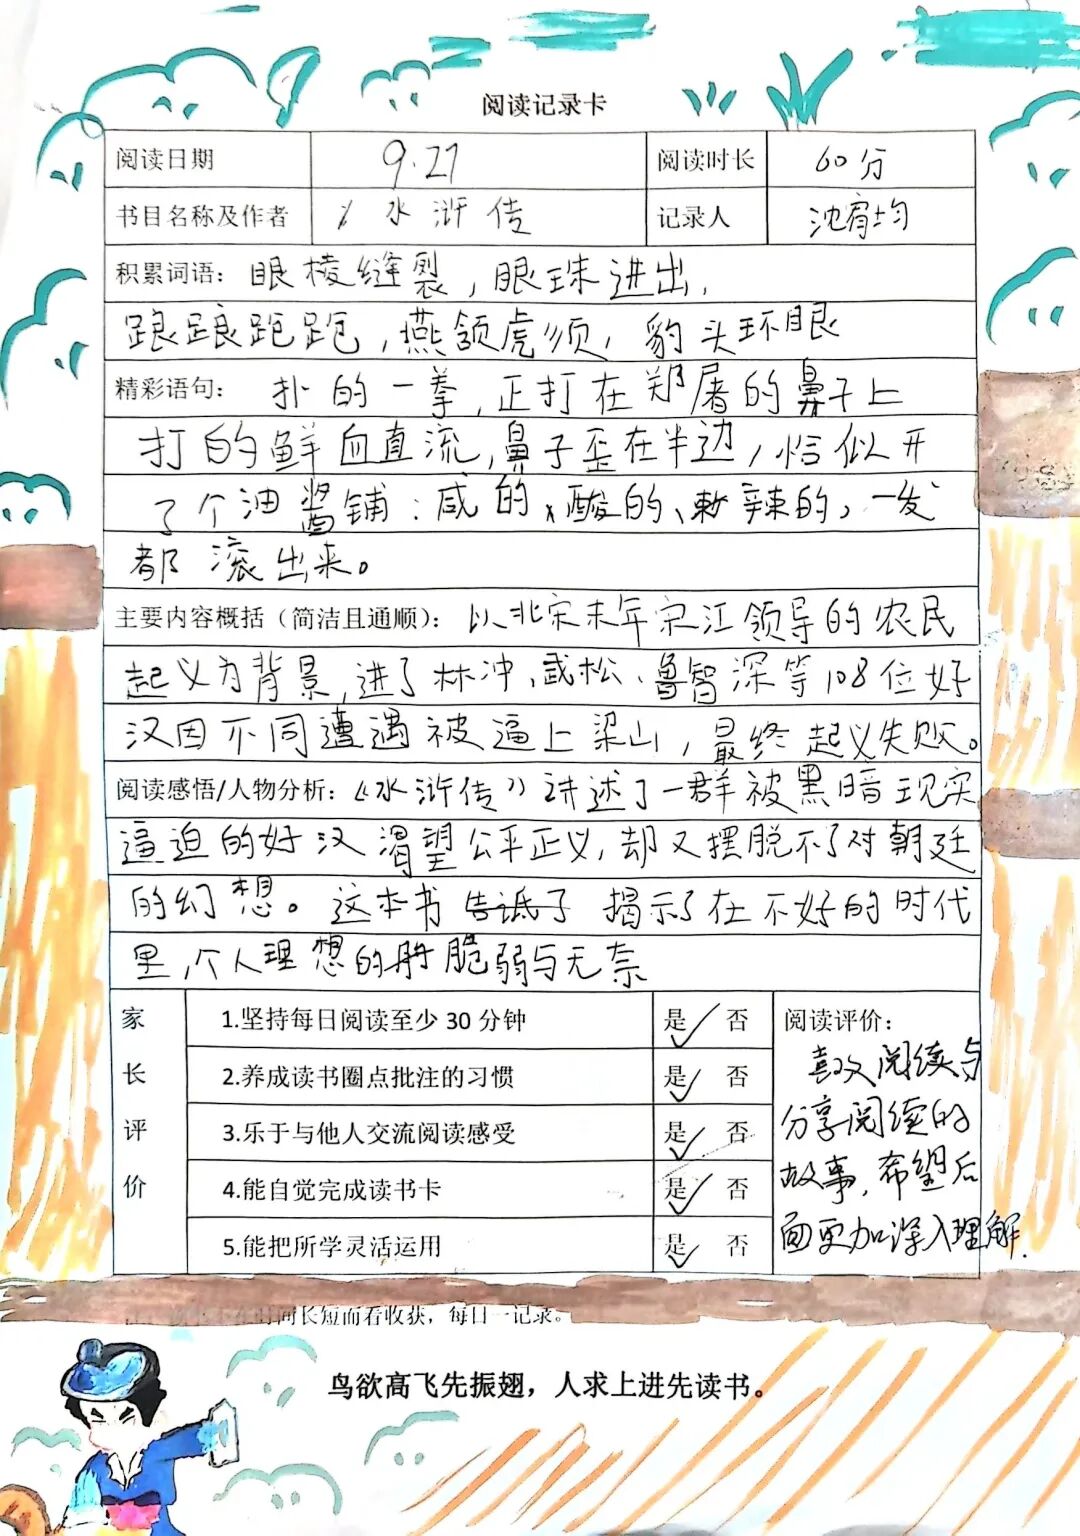 阅读记录卡
阅读日期 9.27 阅读时长 60分
书目名称及作者 水浒传 记录人 沈宥均
积累词语：眼棱缝裂，眼珠迸出，
踉踉跄跄，燕颔虎须，豹头环眼
精彩语句：扑的一拳，正打在郑屠的鼻子上
打的鲜血直流，鼻子歪在半边，恰似开
了个油酱铺：咸的、酸的、辣的，一发
都滚出来。
主要内容概括（简洁且通顺）：以北宋末年宋江领导的农民
起义为背景，进了林冲、武松、鲁智深等108位好
汉因不同遭遇被逼上梁山，最终起义失败。
阅读感悟/人物分析：《水浒传》讲述了一群被黑暗现实
逼迫的好汉渴望公平正义，却又摆脱不了对朝廷
的幻想。这本书告诉了揭示了在不好的时代
里，个人理想的脆弱与无奈
家长评价
1.坚持每日阅读至少30分钟 是✓ 否
2.养成读书圈点批注的习惯 是✓ 否
3.乐于与他人交流阅读感受 是✓ 否
4.能自觉完成读书卡 是✓ 否
5.能把所学灵活运用 是✓ 否
阅读评价：
喜欢阅读与
分享阅读的
故事，希望后
面更加深入理解．
时间长短而看收获，每日一记录。
鸟欲高飞先振翅，人求上进先读书。